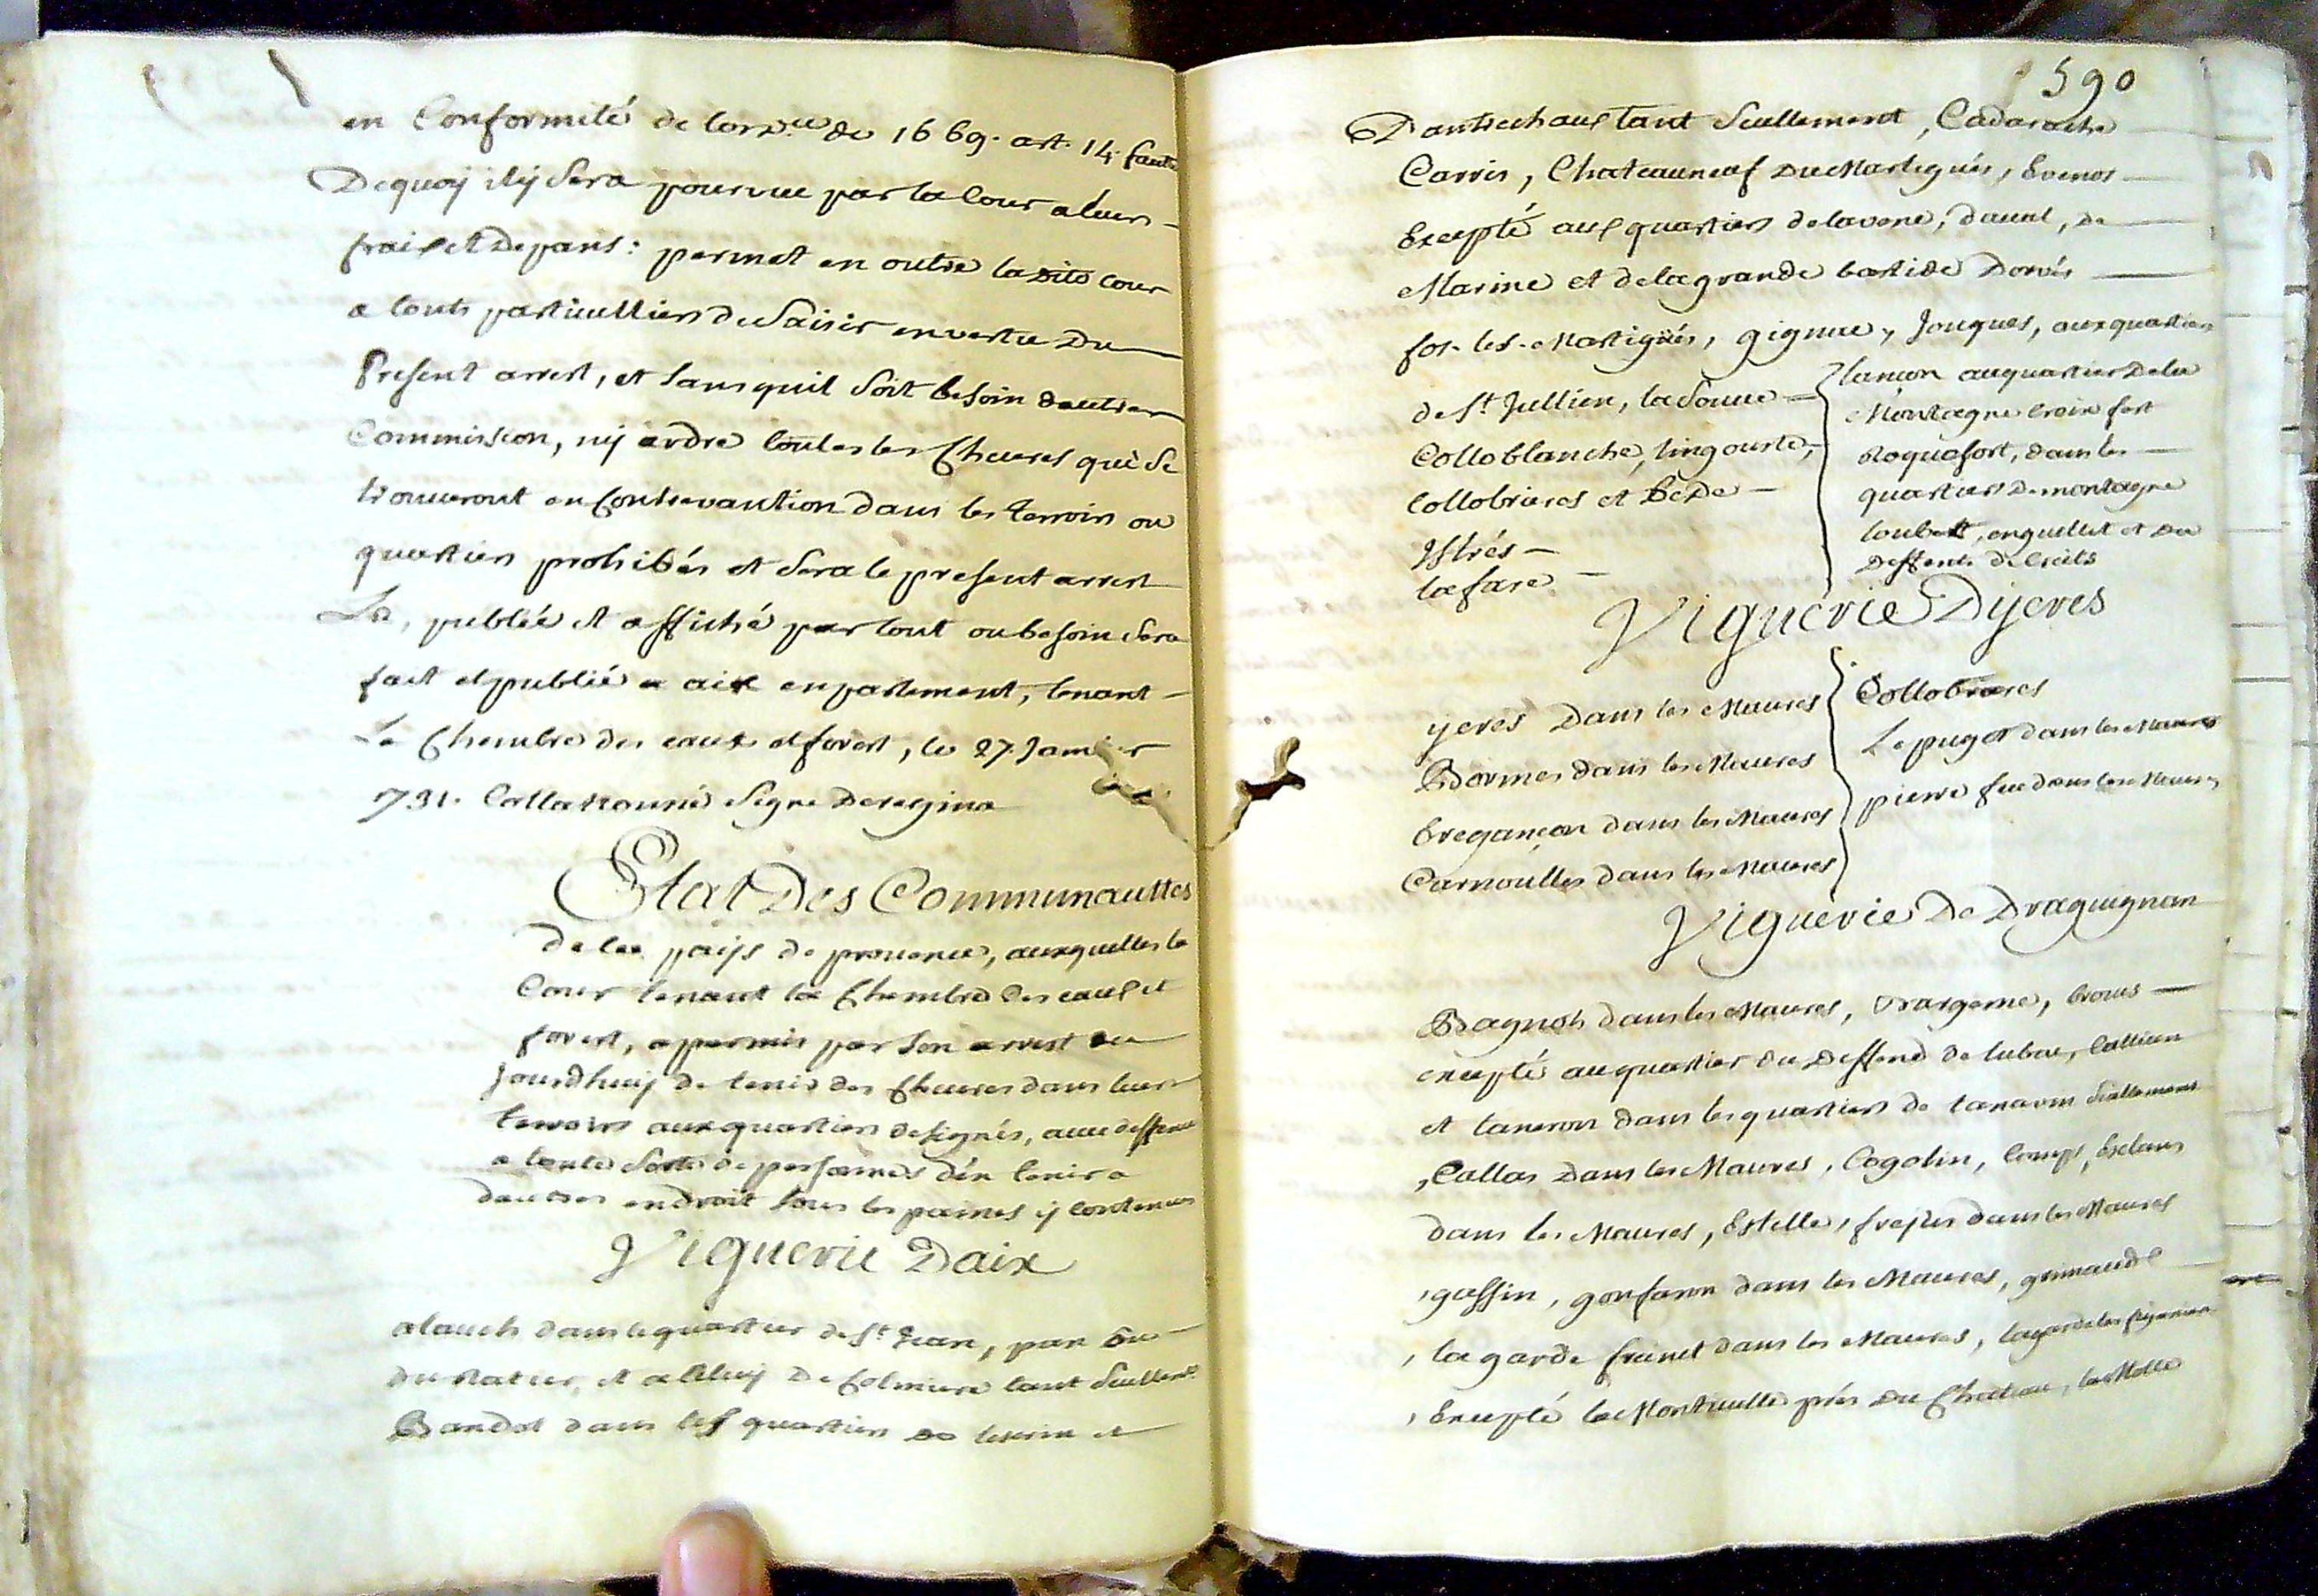 en Conformité de lord.ce de 1669. art. 14. faute
Dequoy ily Sera pourvue par la Cour a leurs
fraix et Depans: permet en outre la dite Cour
a touts particulliers de Saisir en vertu Du
Present arrest, et Sans quil Soit besoin dautres
Commission, ny ordre toutes les Chevres qui Se
trouveront en Contrevantion dans les terroirs ou
quartiers prohibés et Sera le present arrest
Lu, publié et affiché par tout ou besoin Sera
fait et publié a aix en parlement, tenant
La Chambre des eaux et forest, le 27. Janvier
1731. Collationné Signé Deregina
Etat Des Communauttes
de ce païs de provence, auxquelles la
Cour tenant la Chambre des eaux et
forest, a permis par Son arrest du
Jourdhuy de tenir des Chevres dans leurs
terroirs aux quartiers designés, avec deffence
a toute Sorte de personnes dén tenir a
dautres endroit Sous les peines y contenues
Viguerie Daix
alauch dans le quartier de St Jean,
et a Celuy De tant Seullemt
Bandol dans les quartiers de et
590
Dantrechaux tant Seullement, Cadarache
Carris, Chateauneuf Du Martegués, Evenos
Excepté aux quartiers de lavene, daunt, de
Marine et de la grande bastide Dorvés
fos-les-Martigués, gignac, Jouques, aux quartiers
de St Jullien, la Sauve
Colloblanche, lingouste,
Collobrieres et Bede
Istrés
la fare
lancon au quartier De la
Montagne Croix fort
Roquefort, dans les
quartiers De montagne
loubet, enguellet et Du
Deffents de Cuits
Viguerie Dyeres
yeres Dans les Maures
Bormes dans les Maures
Bregançon dans les Maures
Carnoulles dans les Maures
Collobrieres
Le puget dans les Maures
pierre feu dans les Maures
Viguerie De Draguignan
Bagnols dans les Maures, Bargeme, broves
excepté au quartier Du Deffend de lubac, Callian
et taneron dans les quartiers de tanaron Seullement
, Callas Dans les Maures, Cogolin, Comps, Esclans
dans les Maures, Estelle, frejus dans les Maures
, gassin, gonfaron dans les Maures, grimaud
, la garde freinet dans les Maures, lagarde les figaniere
, Excepté la Monticulle prés Du Chateau, la Molle